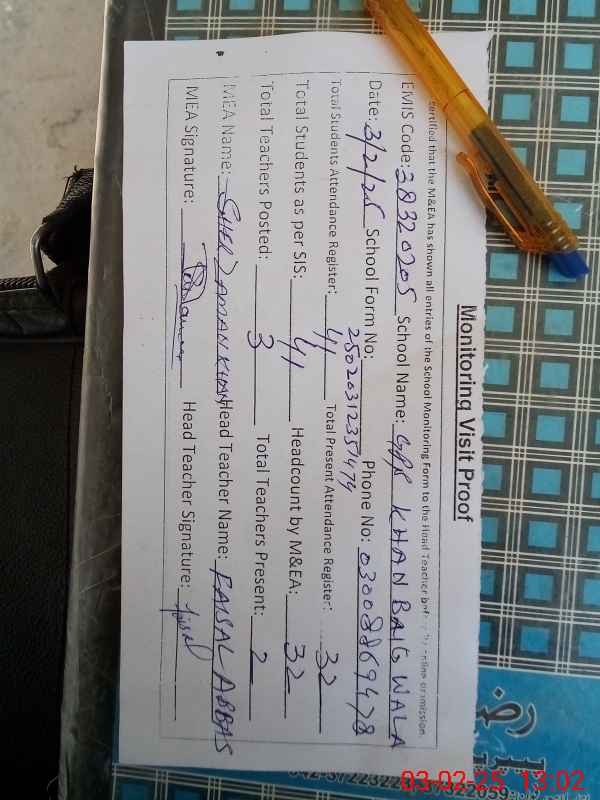 Monitoring Visit Proof
Certified that the M&EA has shown all entries of the School Monitoring Form to the Head Teacher before online submission
EMIS Code: 38320205 School Name: GPS KHAN BAIG WALA
Date: 3/2/25 School Form No: 25020312351474 Phone No: 03008869478
Total Students Attendance Register: 41 Total Present Attendance Register: 32
Total Students as per SIS: 41 Headcount by M&EA: 32
Total Teachers Posted: 3 Total Teachers Present: 2
MEA Name: SHER ZAMAN KHAN Head Teacher Name: FAISAL ABBAS
MEA Signature: Head Teacher Signature: Faisal
03-02-25 13:02